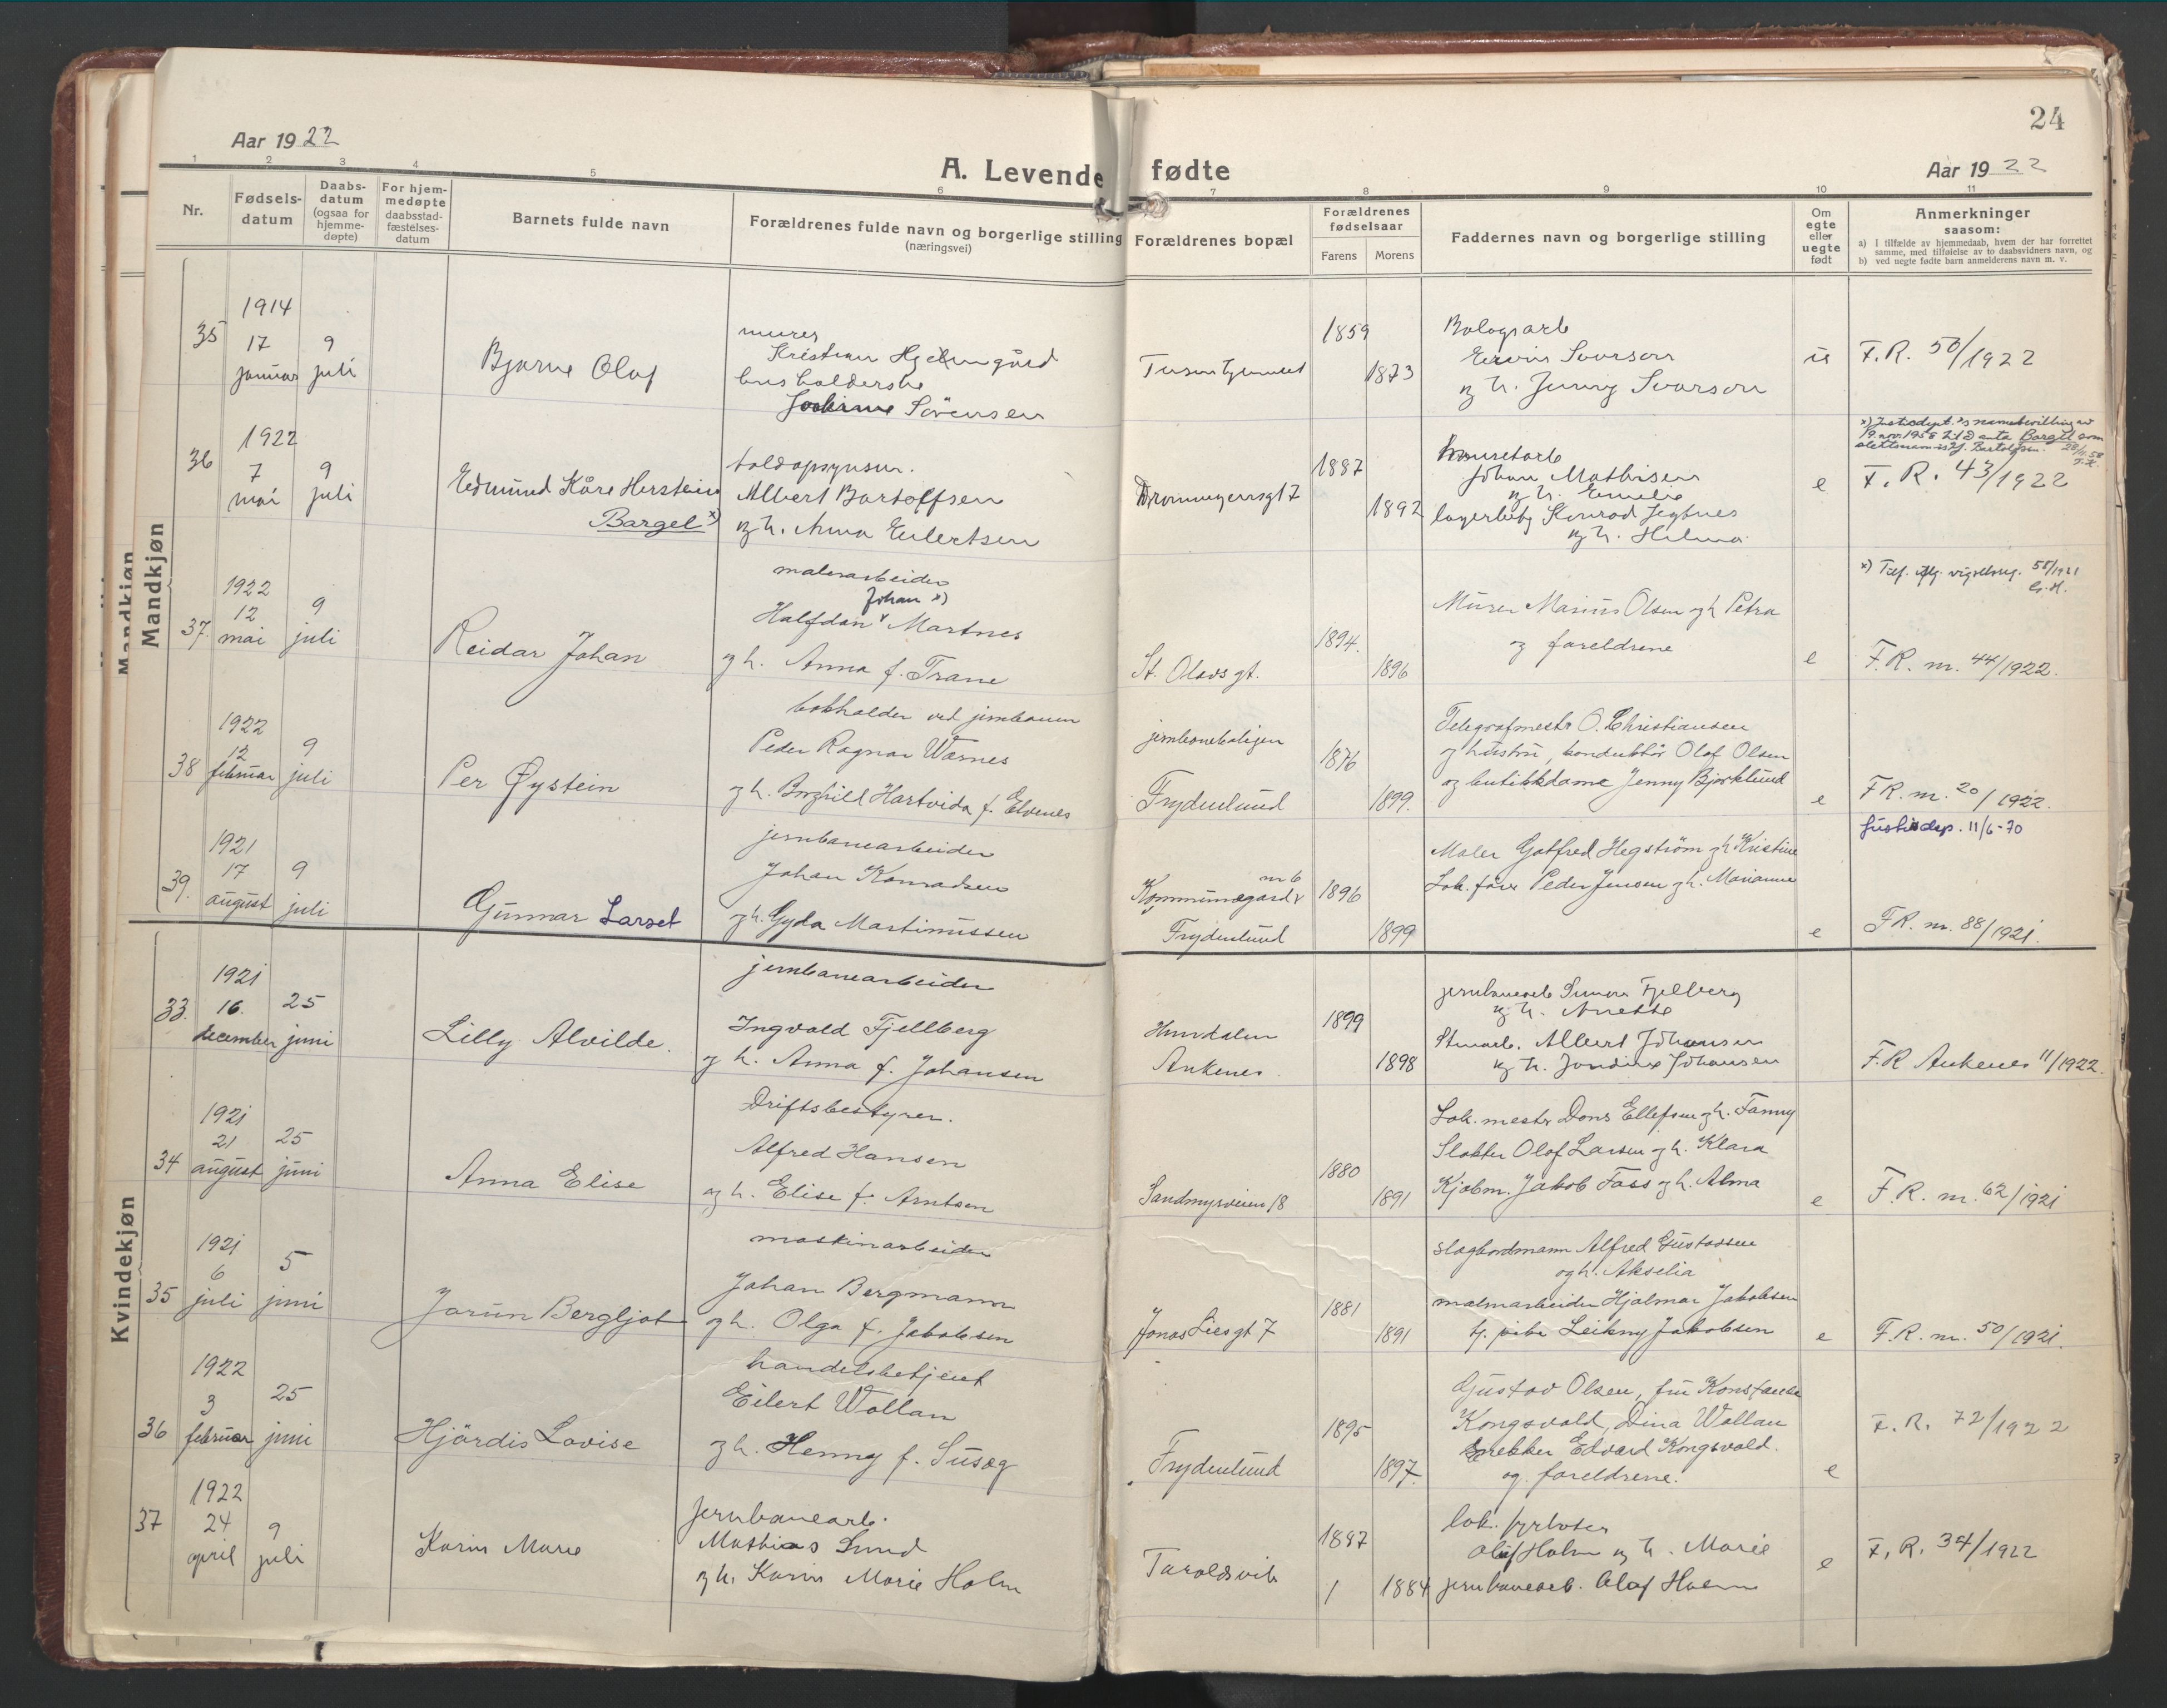 24
Aar 1922
A. Levende fødte
Aar 1922
1 2 3 4 5 6 7 8 9 10 11
Nr.
Fødsels-
datum
Daabs-
datum
(ogsaa for
hjemme-
døpte)
For hjem-
medøpte
daabsstad-
fæstelses-
datum
Barnets fulde navn
Forældrenes fulde navn og borgerlige stilling
(næringsvei)
Forældrenes bopæl
Forældrenes
fødselsaar
Farens
Morens
Faddernes navn og borgerlige stilling
Om
egte
eller
uegte
født
Anmerkninger
saasom:
a) I tilfælde av hjemmedaab, hvem der har forrettet
samme, med tilføielse av to daabsvidners navn, og
b) ved uegte fødte barn anmelderens navn m. v.
Mandkjøn
35
1914
17
januar
9
juli
Bjarne Olaf
murer
Kristian
husholderske
Sörensen
1859
1873
Bolagsarb
Svarson
og h. Jenny Svarson
u
F.R. 50/1922
36
1922
7
mai
9
juli
Edmund Kåre Herstein
Bargel x)
toldopsynsm.
Albert Bartolfsen
og h. Anna Eilertsen
Dronningensgt 7
1887
1892
Johan Mathisen
og h. Emelie
lagerbetj Konrad
og h. Helma
e
x) Justisdept.'s navnebevilling av
19. nov. 1958 til å anta Bargel som
slektsnavn istf. Bartolfsen.
F.R. 43/1922
37
1922
12
mai
9
juli
Reidar Johan
malmarbeider
Johan x)
Halfdan v Martnes
og h. Anna f. Trane
St. Olavs gt.
1894.
1896
Murer Marius Olsen og h Petra
og foreldrene
e
x) Tilf. vigselsreg. 55/1921
G.H.
F.R. nr. 44/1922.
38
1922
12
februar
9
juli
Per Øystein
bokholder ved jernbanen
Peder Ragnar Warnes
og h. Borghild Hartvida f. Elvenes
jernbaneboligen
Frydenlund
1876
1899.
Telegrafmester O. Christiansen
og hustru, konduktör Olaf Olsen
og butikkdame Jenny Bjørklund
e
F R. nr. 20/1922.
39.
1921
17
august
9
juli
Gunnar Larsel
jernbanearbeider
Johan Konradsen
og h. Gyda Martinussen
nr 6
Kommunegård v
Frydenlund
1896
1899
Maler Gotfred Hegström og h Kristine
Lok. fører Peder Jensen og h. Marianne
e
Justisdep. 11/6-70
F R. nr. 88/1921.
Kvindekjøn
33.
1921
16.
december
25
juni
Lilly Alvilde.
jernbanearbeider
Ingvald Fjellberg
og h. Anna f. Johansen
Hundalen
Ankenes
1899
1898
jernbanearb Fjelberg
og h. Anette
Stenarb. Albert Johansen
og h. Johansen
F.R Ankenes 11/1922.
34
1921
21
august
25
juni
Anna Elise
Driftsbestyrer.
Alfred Hansen
og h. Elise f. Arntsen
Sandmyrveien 18
1880
1891
Lok. mester Dons Ellefsen og h. Fanny
Slakter Olaf Larsen og h. Klara
Kjøbm. Jakob Foss og h. Alma
e
F. R. nr. 62/1921
35
1921
6
juli
5
juni
Jorun Bergljot
maskinarbeider
Johan Bergmann
og h. Olga f. Jakobsen
Jonas Lies gt 7
1881
1891
slagbordmann Alfred Gustavsen
og h. Akselia
malmarbeider Hjalmar Jakobsen
tj. pike Leikny Jakobsen
e
F.R. nr. 50/1921.
36
1922
3
februar
25
juni
Hjördis Lovise
handelsbetjent
Eilert Wollan
og h. Henny f. Susæg
Frydenlund
1895
1897.
Gustav Olsen, fru Konstanse
Kongsvold, Dina Wollan
Snekker Edvard Kongsvold.
og foreldrene.
e
F.R. 72/1922
37
1922
24
april
9
juli
Karin Marie
jernbanearb.
Mathias Lund
og h. Karin Marie Holm
Taraldsvik
1887
1884
lok. fyrbøter
Olaf Holm og h. Marie
jernbanearb. Olaf Holm
e
F.R. 34/1922